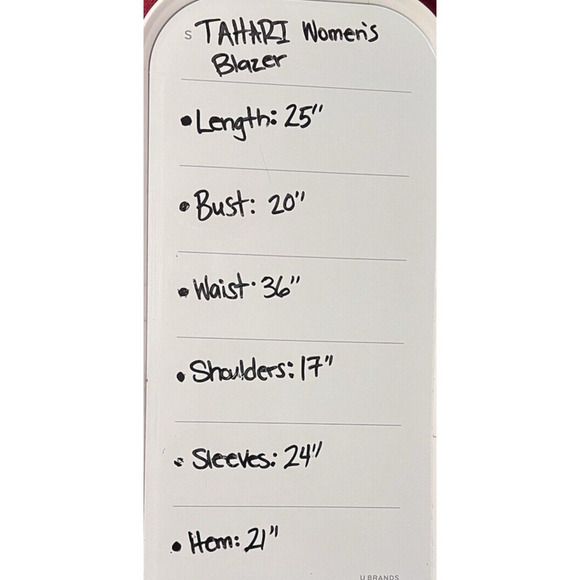 S TAHARI Women's
Blazer
• Length: 25"
• Bust: 20"
• Waist· 36"
• Shoulders: 17"
• Sleeves: 24"
• Hem: 21"
U BRANDS